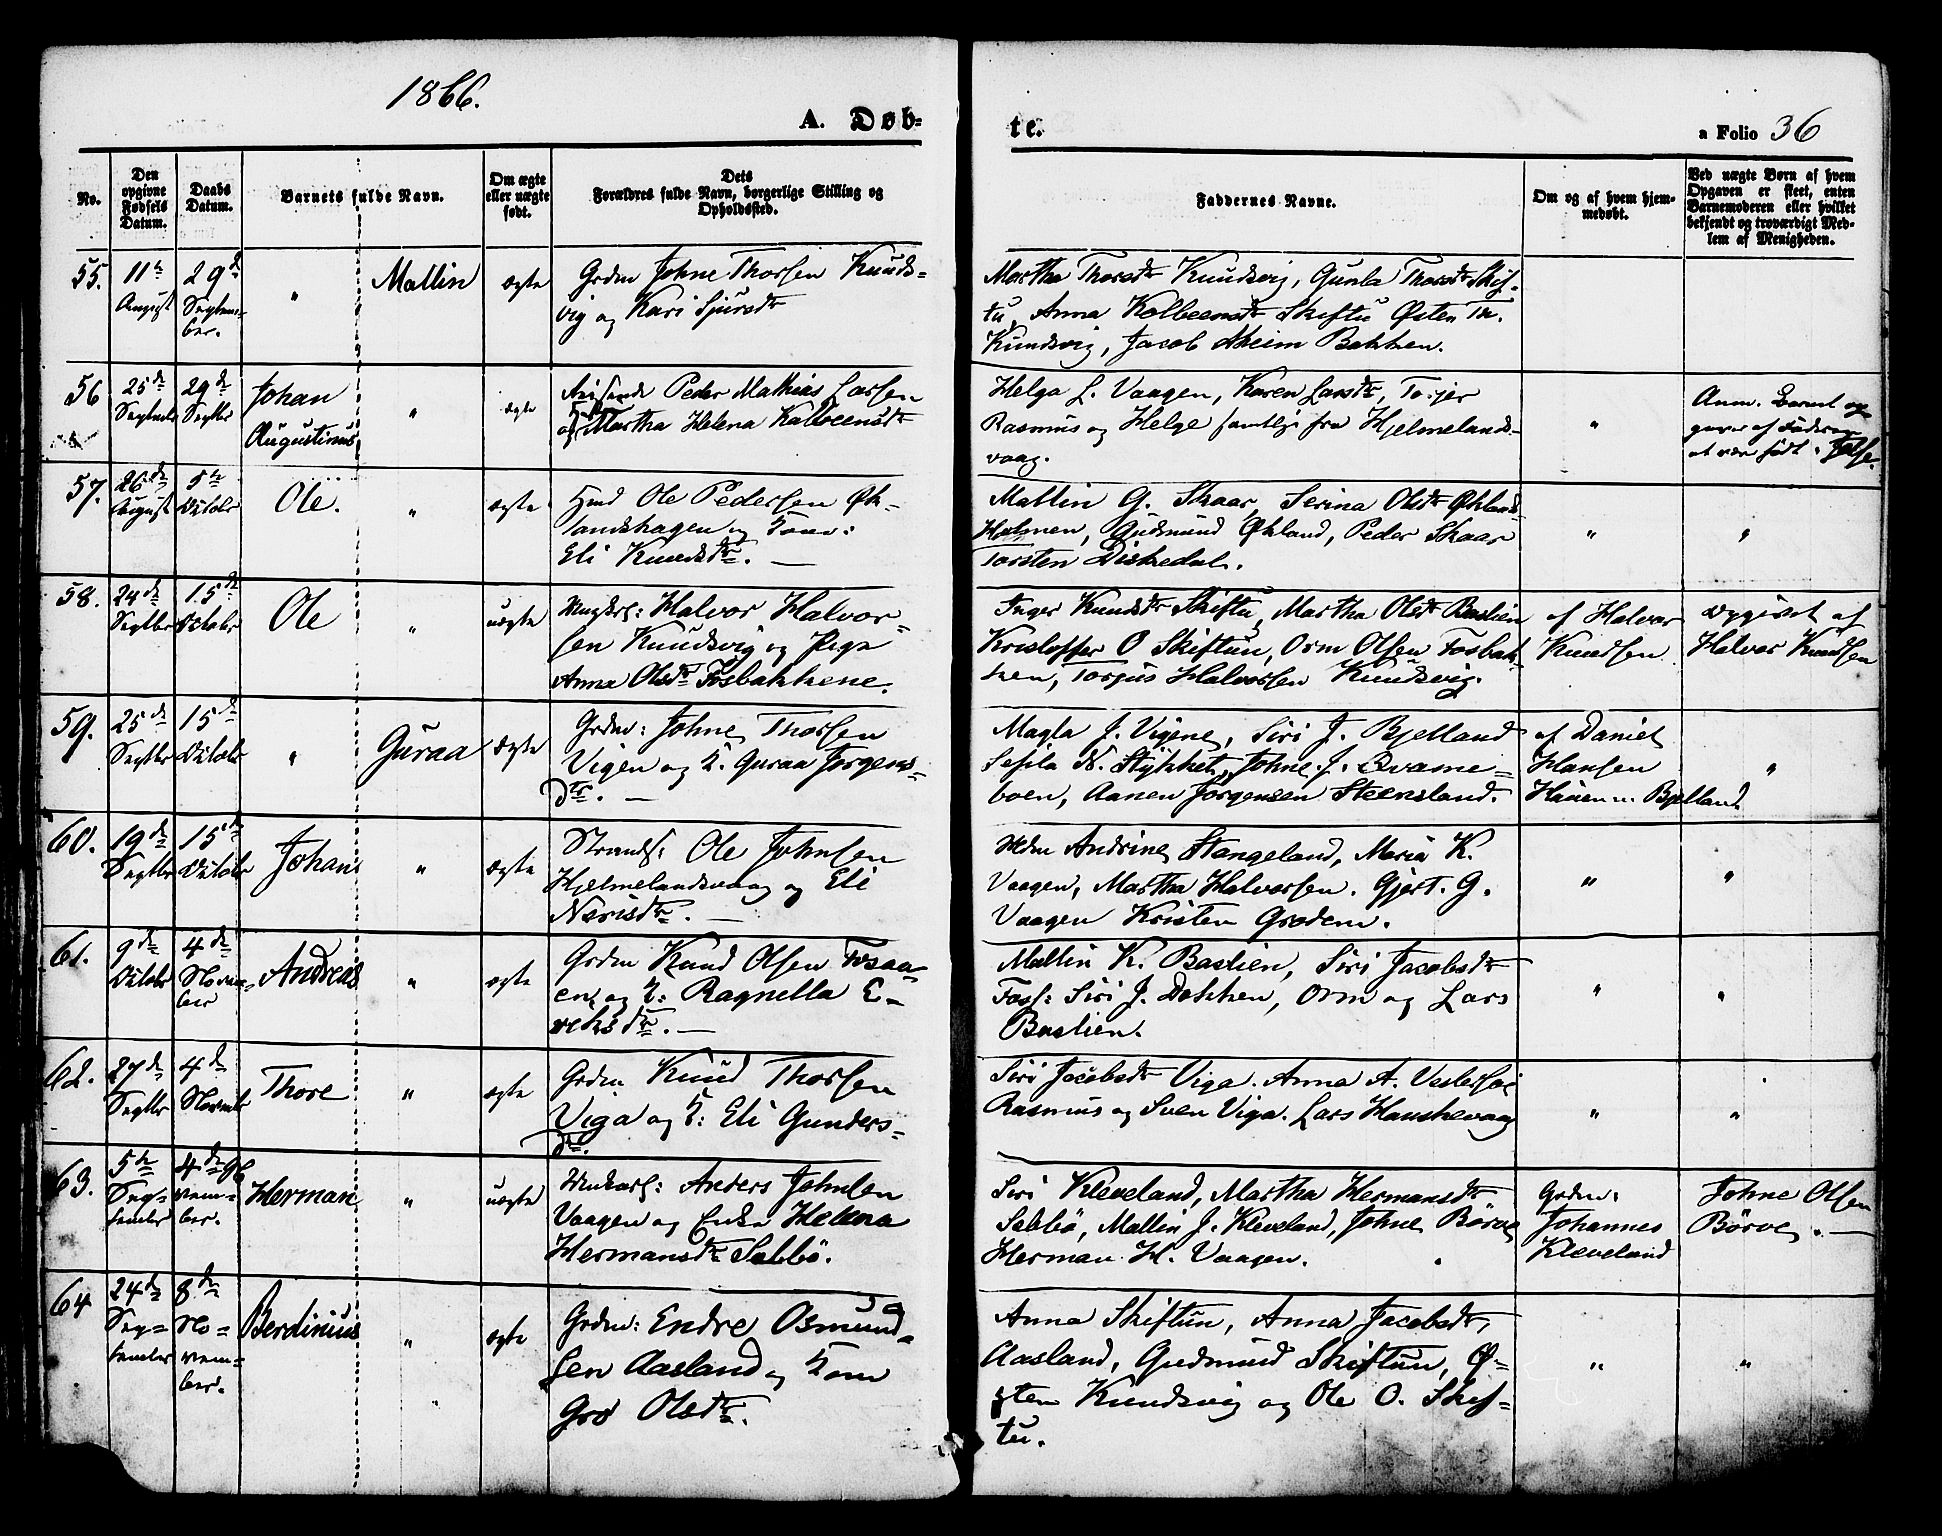 1866.
A. Døb-
te.
a Folio 36
No.
Den opgivne Fødsels Datum.
Daabs Datum.
Barnets fulde Navn.
Om ægte eller uægte født.
Dets Forældres fulde Navn, borgerlige Stilling og Opholdssted.
Faddernes Navne.
Om og af hvem hjemmedøbt.
Ved uægte Børn af hvem Opgaven er skeet, enten Barnemoderen eller hvilket bekjendt og troværdigt Medlem af Menigheden.
55.
11te August
29de September.
"
Mallin
ægte
Grdm Johne Thorsen Knuds-
vig og Kari Sjursdtr
Martha Thorsdtr Knudsvig, Gunla Thorsdtr Skif-
tu, Anna Kolbeensdtr Skiftu Østen Th.
Knudsvig, Jacob Bakken.
56
25de Septembr
29de Septbr
Johan
Augustinus
"
ægte
Peder Mathias Larsen
og Martha Helena Kolbeensdtr
Helga L. Vaagen, Karen Larsdtr, Torjer
Rasmus og Helge samtlige fra Hjelmelands-
vaag.
"
Anm. Barnet op
gives af Faderen
at være født i Jelse.
57.
26de August
5te Octobr
Ole.
"
ægte
Hmd Ole Pedersen Øk-
landshagen og Kone:
Eli Knudsdtr. —
Mallin G. Skaar, Serina Olsdtr Øklands
Holmen, Gudmund Økland, Peder Skaar
Torsten Diskedal.
"
"
58.
24de Septbr
15de Octobr
Ole
"
uægte
Ungkrl: Halvor Halvor-
sen Knudsvig og Pige
Anna Olsdtr Fosbakkene.
Inger Knudsdtr Skiftu, Martha Olsdtr Bastlien
Kristoffer O Skiftun, Orm Olsen Fosbak-
ken, Torjus Halvorsen Knudsvig.
af Halvor
Knudsen
opgivet af
Halvor Knudsen
59.
25de Septbr
15de Octobr
"
Guraa
ægte
Grdm: Johne Thorsen
Vigen og K. Guraa Jørgens-
dtr. —
Magla J. Vigene, Siri J. Bjelland
Sesila N. Stykket, Johne J. Qvame-
boen, Aanen Jørgensen Steensland.
af Daniel
Hansen
Bjelland
"
60.
19de Septbr
15de Octobr
Johan
"
ægte
Strands: Ole Johnsen
Hjelmelandsvaag og Eli
Nærisdtr. —
Mdm Andrine Stangeland, Maria K.
Vaagen, Martha Halvorsen. Gjert. G.
Vaagen Kristen Grødem.
"
"
61.
9de Octobr
4de November
Andreas
"
ægte
Grdm Knud Olsen Fosaa-
en og K: Ragnella E-
reksdtr. —
Mallin K. Bastlien, Siri Jacobsdtr
Foss: Siri J. Dokken, Orm og Lars
Bastlien.
"
"
62.
27de Septbr
4de Novembr
Thore
"
ægte
Grdm Knud Thorsen
Viga og K: Eli Gunders-
dtr.
Siri Jacobsdtr Viga. Anna A. Vestersøe
Rasmus og Sven Viga. Lars Hauskevaag
"
"
63.
5te September
4de November.
Herman
"
uægte
Unkarl: Anders Johnsen
Vaagen og Enke Helena
Hermansdtr Sæbbø.
Siri Kleveland, Martha Hermansdtr
Sæbbø, Mallin J. Kleveland, Johne Børve
Herman H. Vaagen.
Grdm:
Johannes
Kleveland
Johne Olsen
Børve. —
64
24de September
8de November.
Berdinius
"
ægte
Grdm: Endre Osmund-
sen Aasland og Kone
Gro Olsdtr.
Anna Skiftun, Anna Jacobsdtr,
Aasland, Gudmund Skiftun, Ø-
sten Knudsvig og Ole O. Skif-
tu.
"
"